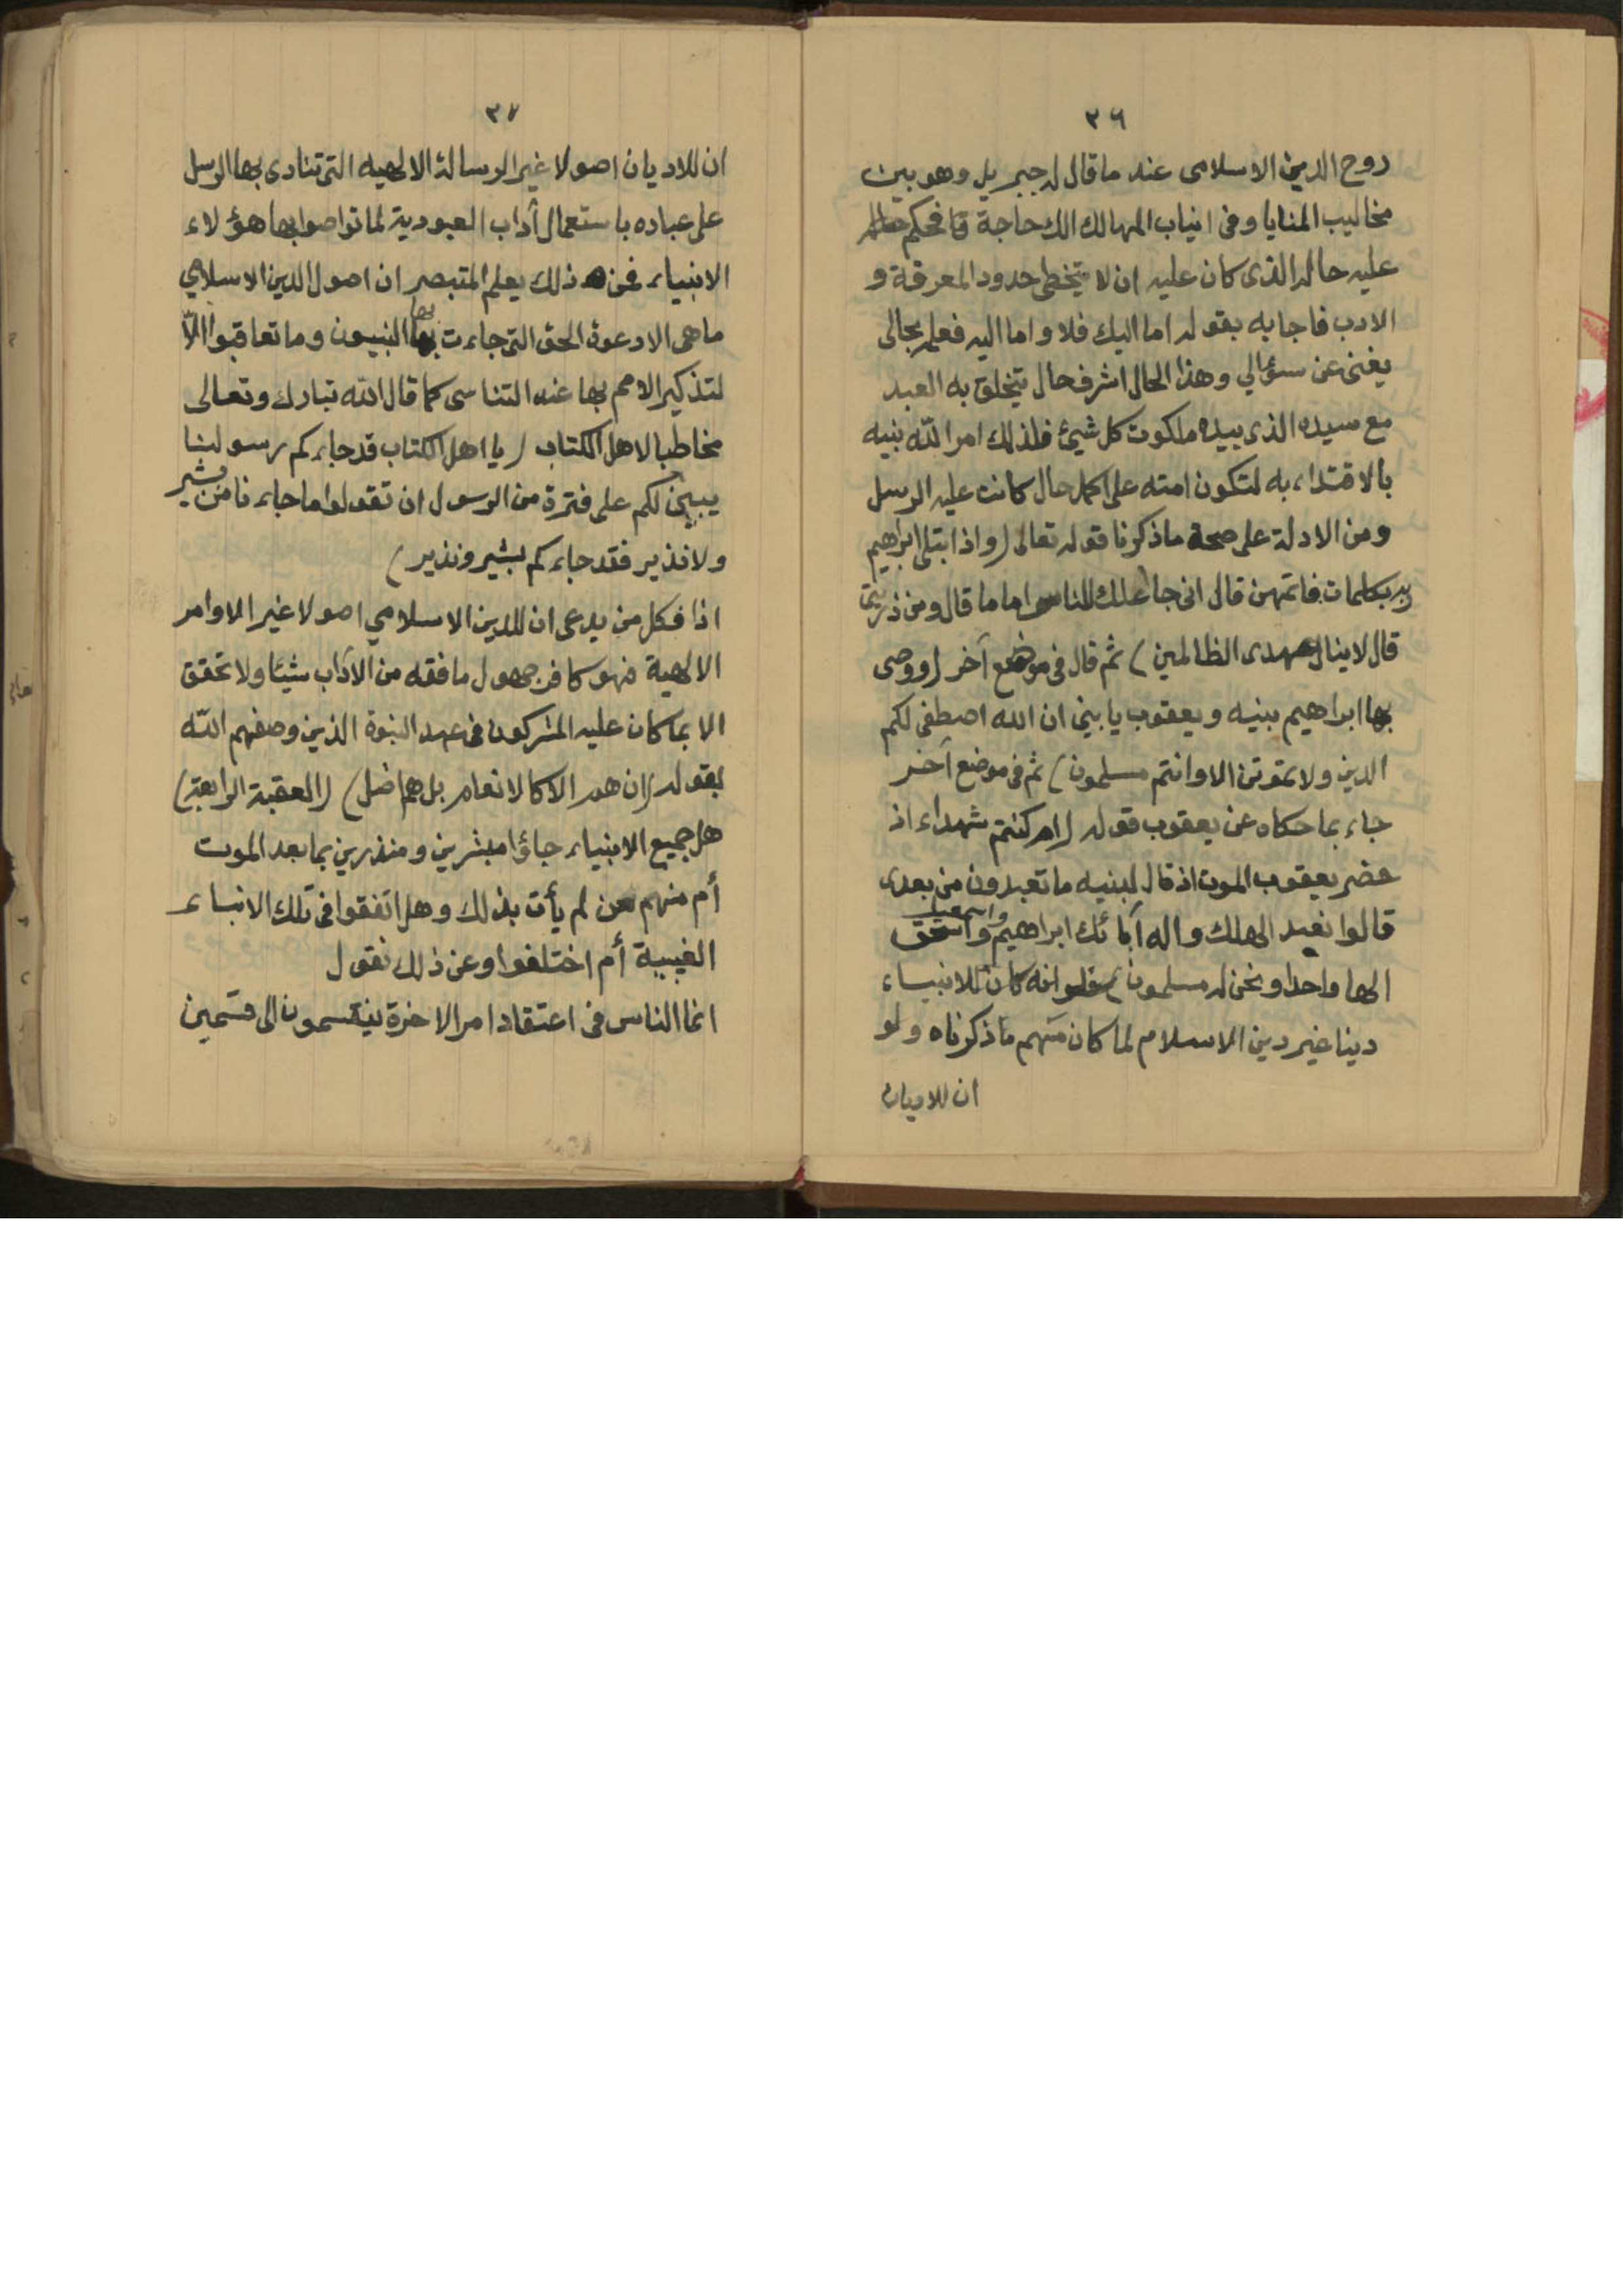 ٣٦
روح الدين الاسلامى عند ما قال له جبريل وهو بين
مخاليب المنايا وفى انياب المهالك الك حاجة فحكم
عليه حاله الذى كان عليه ان لا يتخطى حدود المعرفة و
الادب فاجابه بقوله اما اليك فلا واما اليه فعلمه بحالى
يغنى عن سؤالي وهذا الحال اشرف حال يتخلق به العبد
مع سيده الذى بيده ملكوت كل شيئ فلذلك امر الله نبيه
بالاقتداء به لتكون امته على اكمل حال كانت عليه الرسل
ومن الادلة على صحة ماذكرنا قوله تعالى (واذ ابتلى ابراهيم
ربه بكلمات فاتمهن قال انى جاعلك للناس اماما قال ومن ذريتى
قال لاينال عهدى الظالمين) ثم قال فى موضع آخر (ووصى
بها ابراهيم بنيه ويعقوب يا بني ان الله اصطفى لكم
الدين ولا تموتن الا وانتم مسلمون) ثم فى موضع آخر
جاء بما حكاه عن يعقوب فقوله (ام كنتم شهداء اذ
حضر يعقوب الموت اذ قال لبنيه ما تعبدون من بعدى
قالوا نعبد الهك واله آبائك ابراهيم واسمعيل واسحق
الها واحدا ونحن له مسلمون) فلو انه كان للانبياء
دينا غير دين الاسلام لما كان منهم ما ذكرناه ولو
ان للاديان
٣٧
ان للاديان اصولا غير الرسالة الالهيه التى تنادى بها الرسل
على عباده باستعمال آداب العبودية لما تواصوا بها هؤلاء
الانبياء فمن ذلك يعلم المتبصر ان اصول الدين الاسلامي
ماهى الا دعوة الحق التى جاءت بها النبيون وما تعاقبوا الا
لتذكير الامم بها عند التناسى كما قال الله تبارك وتعالى
مخاطبا لاهل الكتاب (يا اهل الكتاب قد جاءكم رسولنا
يبين لكم على فترة من الرسول ان تقولوا ما جاءنا من بشير
ولا نذير فقد جاءكم بشير ونذير)
اذا فكل من يدعى ان للدين الاسلامي اصولا غير الاوامر
الالهية فهو كافر جهول ما فقه من الآداب شيئا ولا تحقق
الا بما كان عليه المشركون فى عهد النبوة الذين وصفهم الله
بقوله (ان هم الا كالانعام بل هم اضل) (العقبة الرابعة)
هل جميع الانبياء جاؤا مبشرين ومنذرين بما بعد الموت
أم منهم من لم يأت بذلك وهل اتفقوا فى تلك الانباء
الغيبية أم اختلفوا وعن ذلك نقول
انما الناس فى اعتقاد امر الاخرة ينقسمون الى قسمين